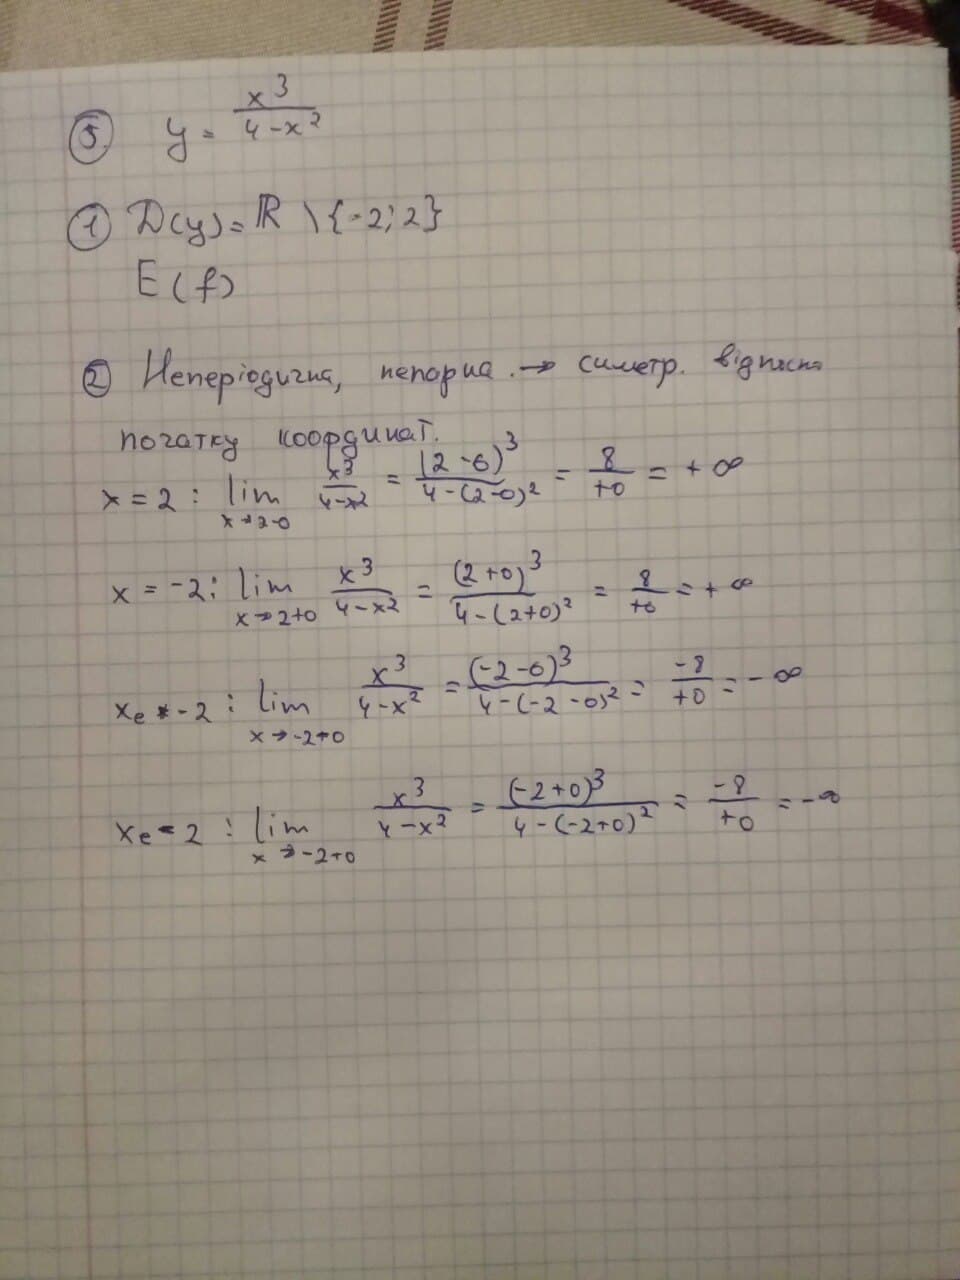 ⑤ y = x³/(4-x²)
① D(y) = ℝ \ {-2; 2}
E(f)
② Неперіодична, непарна → симетр. відносно
початку координат.
x = 2 : lim x→2-0 x³/(4-x²) = (2-0)³/(4-(2-0)²) = 8/+0 = +∞
x = -2 : lim x→2+0 x³/(4-x²) = (2+0)³/(4-(2+0)²) = 8/+0 = +∞
-2 : lim x→-2+0 x³/(4-x²) = (-2-0)³/(4-(-2-0)²) = -8/+0 = -∞
2 : lim x→-2+0 x³/(4-x²) = (-2+0)³/(4-(-2+0)²) = -8/+0 = -∞